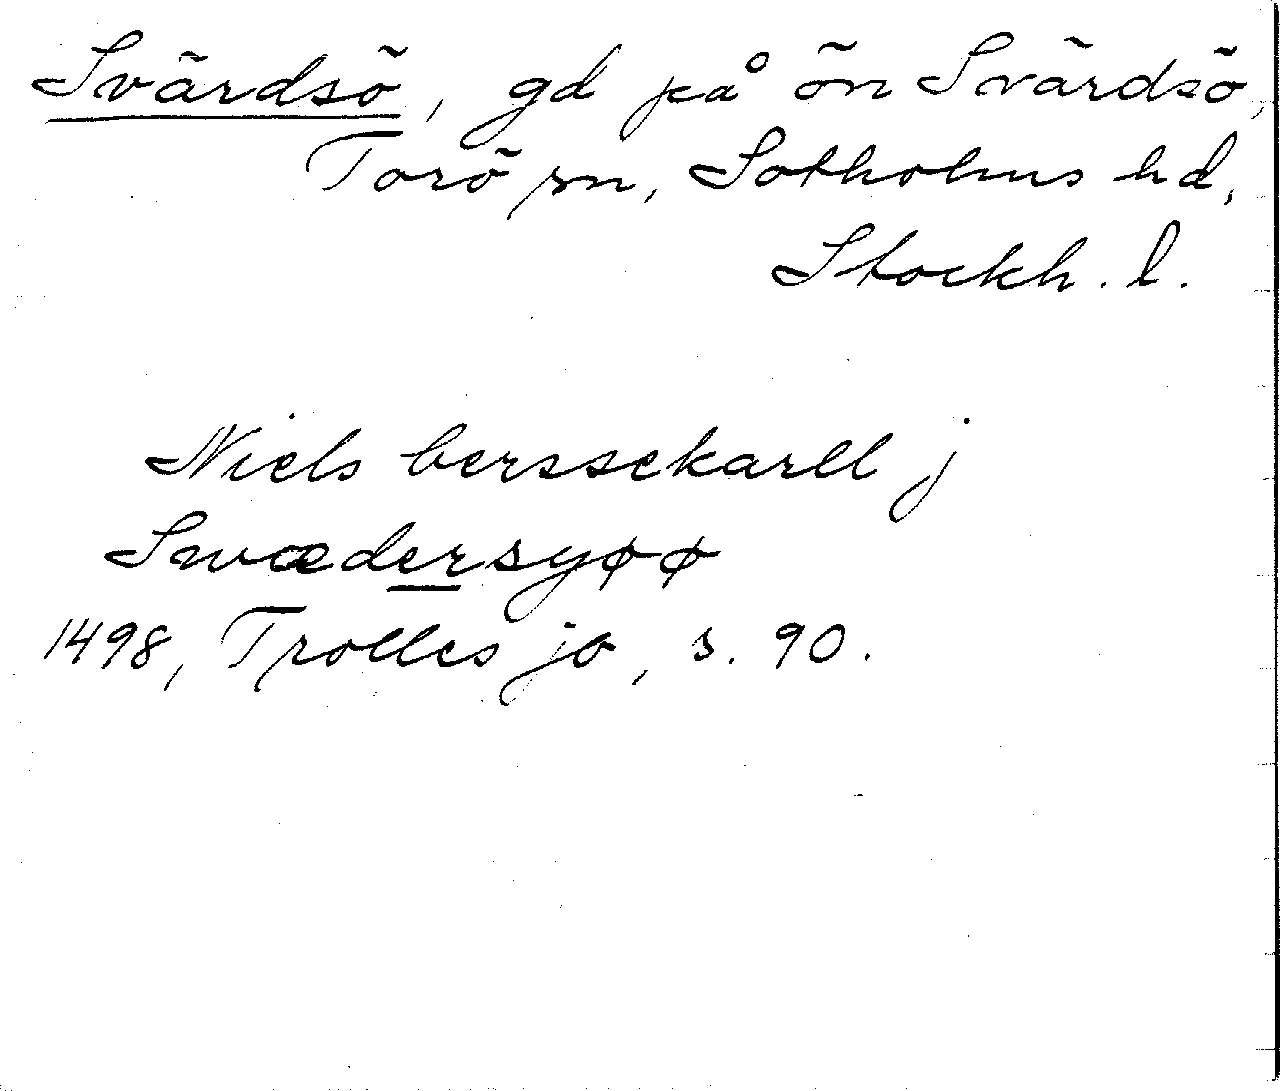 Svärdsö, gd på ön Svärdsö,
Torö sn, Sotholms hd,
Stockh. l.
Niels berssekarll j
Swædersyøø
1498, Trolles jb, s. 90.